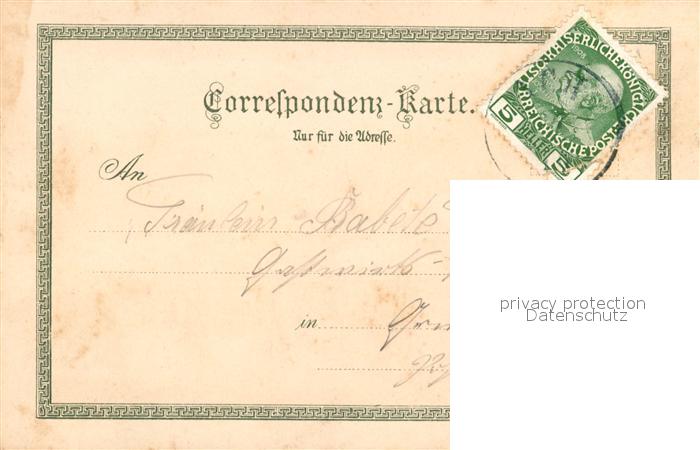 Correspondenz-Karte.
Nur für die Adresse.
KAISERLICHE KÖNIGL
ÖSTERREICHISCHE POST
1908
5 HELLER 5
An
Fräulein Babete
Gastwirts-
in
privacy protection
Datenschutz